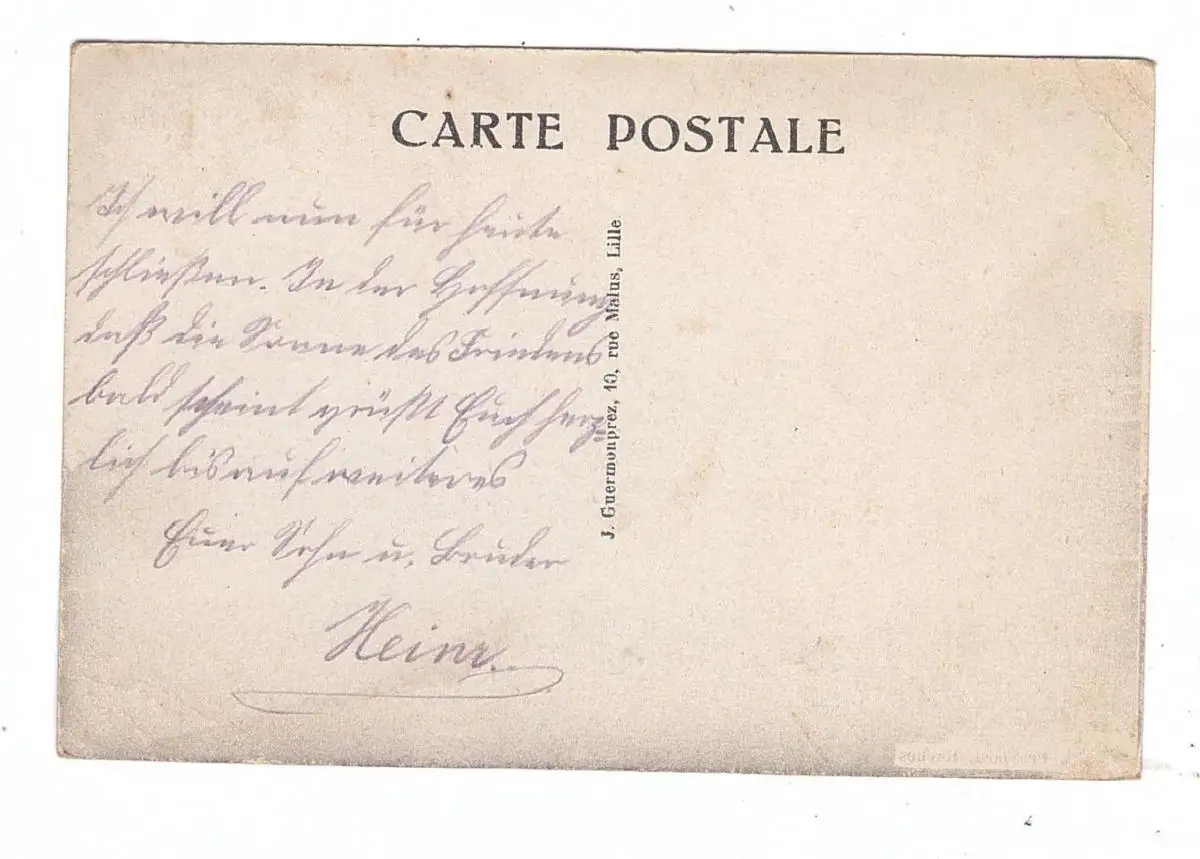 CARTE POSTALE
Ich will nun für heute
schließen. In der Hoffnung
daß die Sonne des Friedens
bald scheint grüßt Euch herz-
lich bis auf weiteres
Euer Sohn u. Bruder
Heinr.
J. Guermonprez, 10, rue Malus, Lille